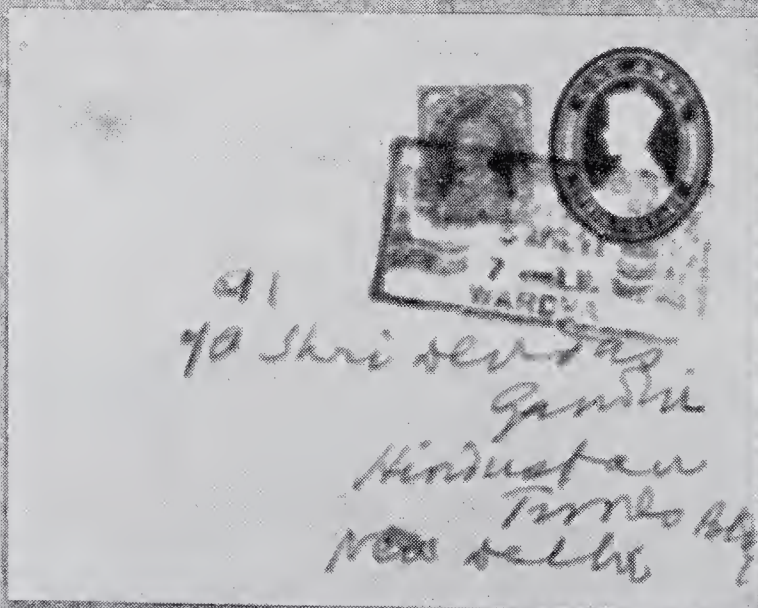 WARDHA
બા
C/o Shri Devdas
Gandhi
Hindustan
Times Bldg
New Delhi